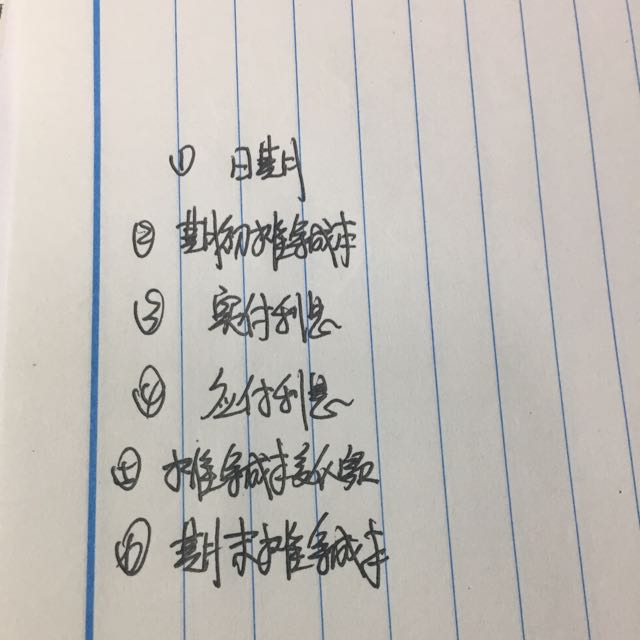 ① 日期
② 期初摊余成本
③ 实付利息
④ 应付利息
⑤ 摊余成本差额
⑥ 期末摊余成本